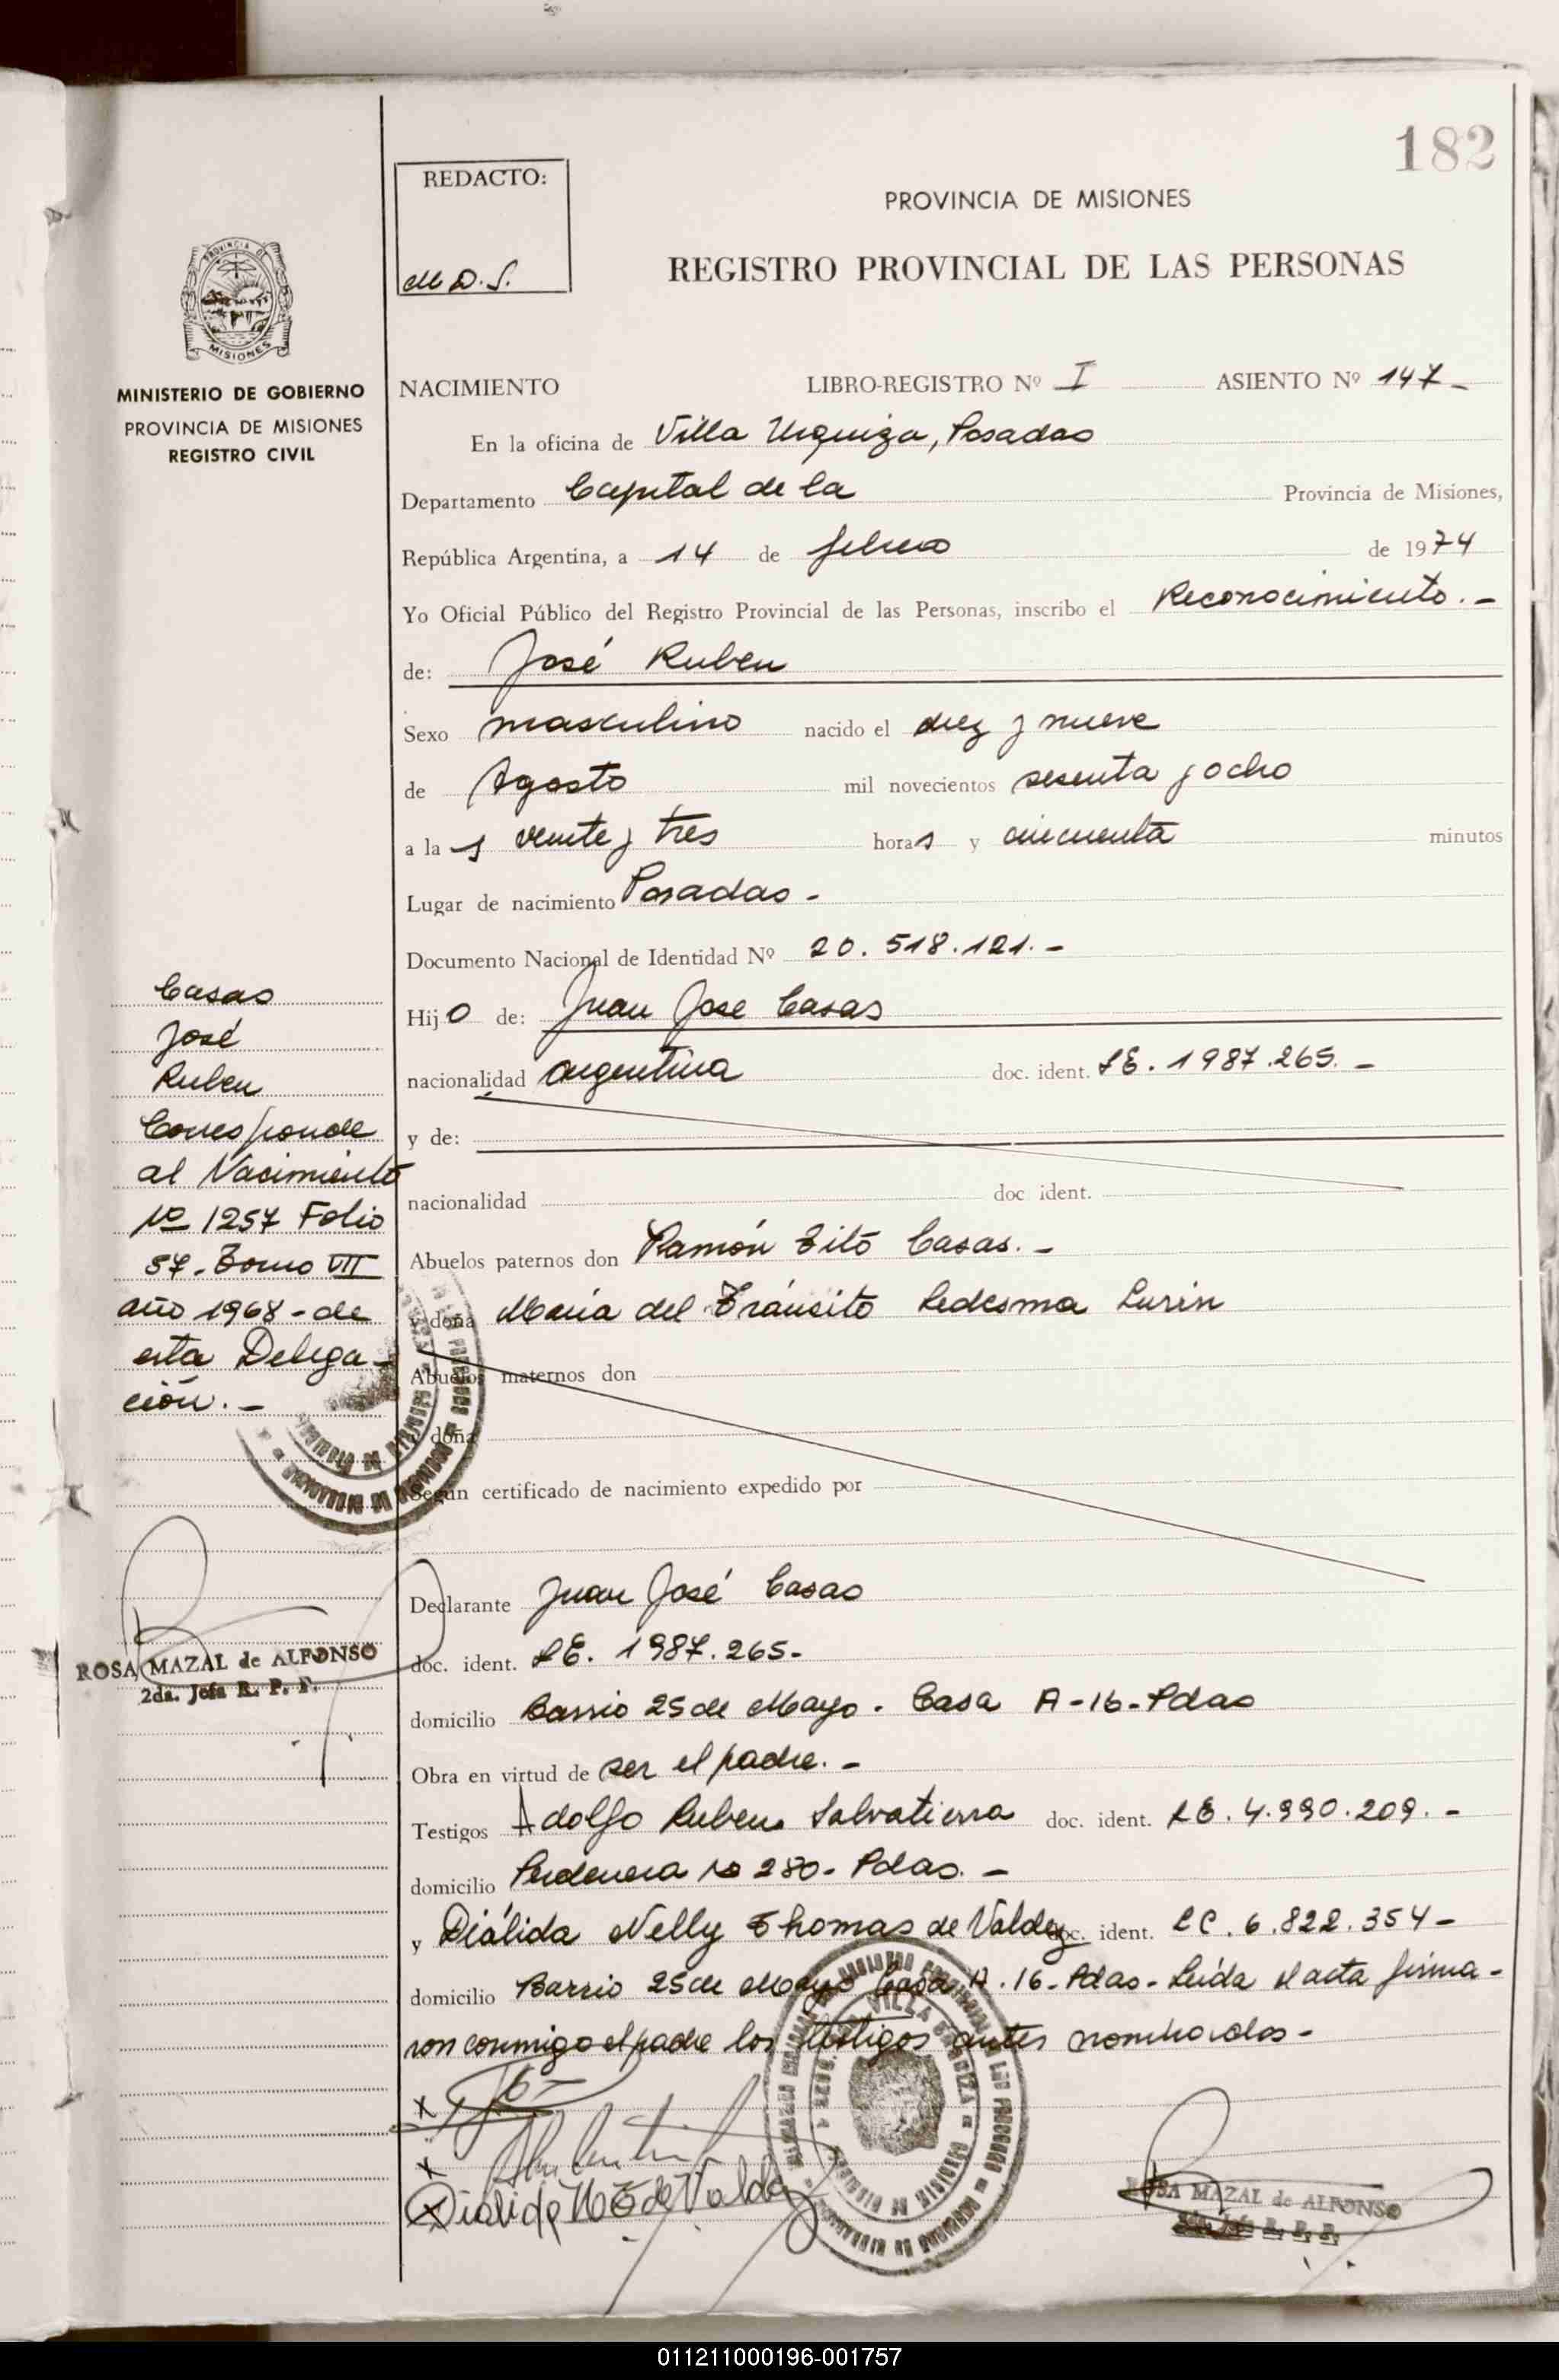 182
REDACTO:
M D. S.
PROVINCIA DE MISIONES
REGISTRO PROVINCIAL DE LAS PERSONAS
MISIONES
MINISTERIO DE GOBIERNO
PROVINCIA DE MISIONES
REGISTRO CIVIL
NACIMIENTO LIBRO-REGISTRO Nº I ASIENTO Nº 147-
En la oficina de Villa Urquiza, Posadas
Departamento Capital de la Provincia de Misiones,
República Argentina, a 14 de febrero de 1974
Yo Oficial Público del Registro Provincial de las Personas, inscribo el Reconocimiento.-
de: José Ruben
Sexo masculino nacido el diez y nueve
de Agosto mil novecientos sesenta y ocho
a la s veinte y tres horas y cincuenta minutos
Lugar de nacimiento Posadas -
Documento Nacional de Identidad Nº 20.518.121.-
Hijo de: Juan Jose Casas
nacionalidad argentina doc. ident. LE. 1987.265.-
y de:
nacionalidad doc ident.
Abuelos paternos don Ramón Zitó Casas.-
y doña María del Tránsito Ledesma Lurin
Abuelos maternos don
y doña
Según certificado de nacimiento expedido por
Declarante Juan José Casas
doc. ident. LE. 1987.265-
domicilio Barrio 25 de Mayo. Casa A-16-Pdas
Obra en virtud de ser el padre.-
Testigos Adolfo Ruben Salvatierra doc. ident. LE. 4.990.209.-
domicilio Nº 280- Pdas.-
y Diálida Nelly Thomas de Valdez doc. ident. LC. 6.822.354-
domicilio Barrio 25 de Mayo Casa A.16-Pdas-Leída el acta firma-
ron conmigo el padre los testigos antes nombrados-
Casas
José
Ruben
Corresponde
al Nacimiento
Nº 1257 Folio
57-Tomo VII
año 1968-de
esta Delega-
ción.-
ROSA MAZAL de ALFONSO
2da. Jefa R. P. P.
Dialida N T de Valdez
ROSA MAZAL de ALFONSO
2da. Jefa R. P. P.
011211000196-001757